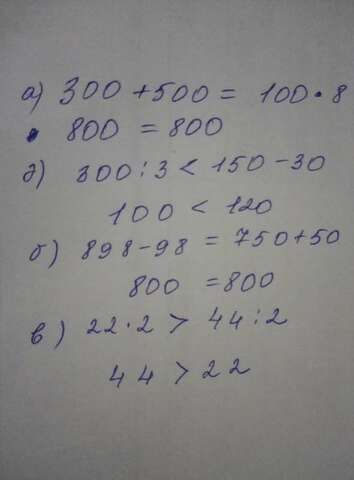 а) 300 + 500 = 100 • 8
800 = 800
д) 300 : 3 < 150 - 30
100 < 120
б) 898 - 98 = 750 + 50
800 = 800
в) 22 • 2 > 44 : 2
44 > 22